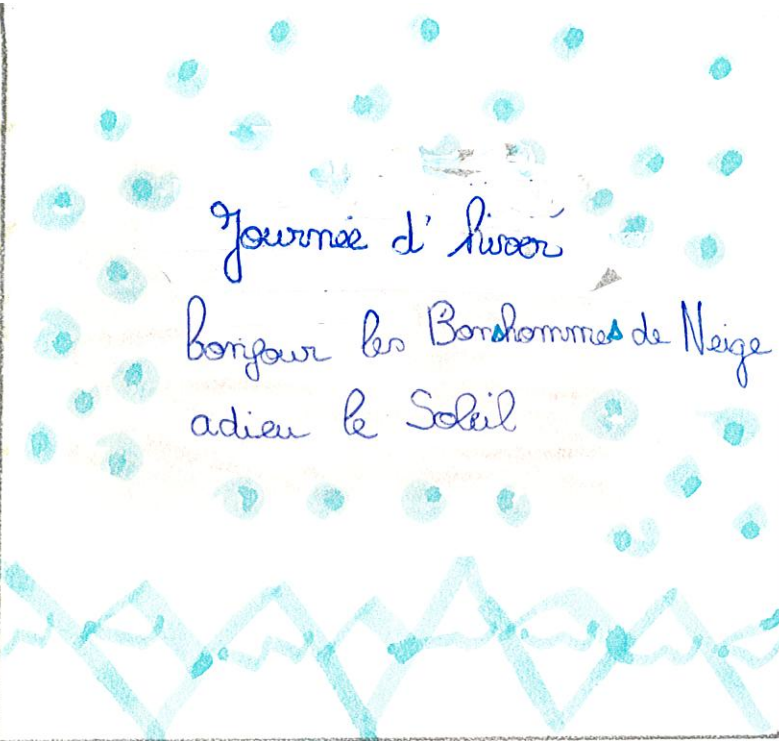 Journée d'hiver
bonjour les Bonshommes de Neige
adieu le Soleil